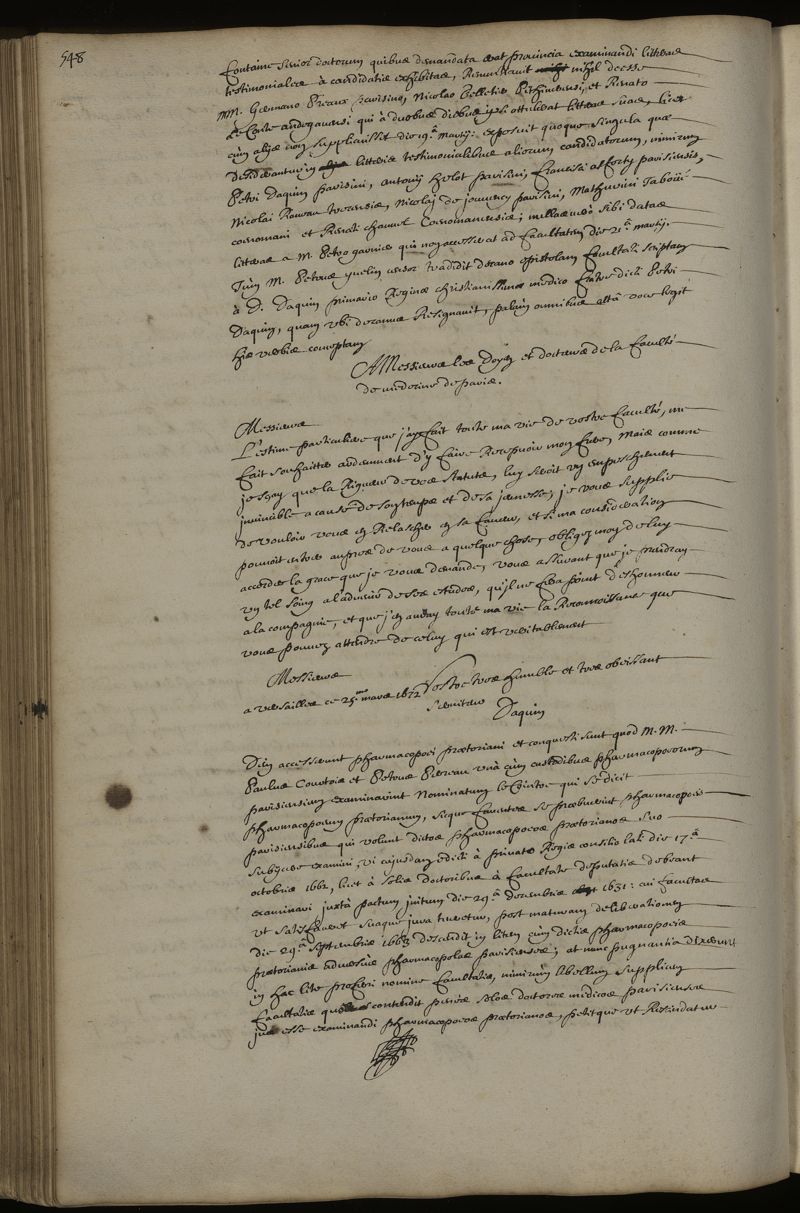 548
Fontaine senior doctorum quibus demandata erat provincia examinandi litteras
testimoniales à candidatis exhibitas, Renuntiavit nihil deesse
MM. Germano Preaux parisino, Nicolao Belletie et Renato
Le Conte andegavensi qui à duobus diebus ipsi attulerat litteras suas, licet
cum alijs non supplicavisset die 19.ᵃ martij: exposuit quoque singula quae
desiderantur in litteris testimonialibus aliorum candidatorum, nimirum
Petri Daquin parisini, antonij parisini, Francisci parisiensis,
Nicolai Nicolaj de parisini, Mathurini
coenomani et Renati Coenomanensis; nullas vero sibi datas
litteras a M. Petro garnier qui non accesserat ad Facultatem die 21.ᵃ martij.
Tum M. Petrus yvelin censor tradidit decano epistolam Facultati scriptam
à D. Daquin primario Reginae christianissimae medico fratre dicti Petri
Daquin, quam ubi decanus Resignavit, palam omnibus altâ voce legit
his verbis conceptam
A Messieurs les Doyen et docteurs de la Faculté
de medecine de paris.
Messieurs
L'estime particuliere que j'ay fait toute ma vie de vostre Faculté, me
fait souhaitter ardemment d'y faire Recepvoir mon frere, Mais comme
je sçay que la Rigueur de vos statuts, luy seroit un empeschement
invincible a cause de son temps et de sa jeunesse, je vous supplie
de vouloir vous en Relascher en sa faveur, et si ma consideration
pouvoit entrer aupres de vous a quelque chose, obligez moy de luy
accorder la grace que je vous demande, vous asseurant que je prendray
un tel soing a l'advenir de ses etudes, qu'il ne fera point d'eshonneur
a la compagnie, et que j'en auray toute ma vie la Reconnoissance que
vous pouvez attendre de celuy qui est veritablement
Messieurs
a versailles ce 25.ᵐᵉ mars 1672 Vostre tres humble et tres obeissant
serviteur
Daquin
Dein accesserunt pharmacopoei praetoriani et conquesti sunt quod M. M.
Paulus Courtois et Petrus Perreau unà cum custodibus pharmacopoeorum
parisiensium examinavint Nominatum le Cointre qui se dicit
pharmacopoeum praetorianum, sicque faventes se praebuerint pharmacopoeis
parisiensibus qui volunt dictos pharmacopoeos praetorianos suo
subijcere examini, vi cujusdam edicti à privato Regis consilio lati die 17.ᵃ
octobris 1662, licet à solis doctoribus à Facultate deputatis debeant
examinari juxtà pactum initum die 29.ᵃ decembris 1631: cui Facultas
ut satisfaceret suaque jura tueretur, post maturam deliberationem
die 29.ᵃ septembris 1663 descendit in litem cum dictis pharmacopoeis
praetorianis adversùs pharmacopolas parisienses; at nunc pugnantia dixerunt
in hac lite proferi nomine Facultatis, nimirum libellum supplicem
Facultatis quo contendit penès solos doctores medicos parisienses
jus esse examinandi pharmacopoeos praetorianos, petitque ut Rescindatur